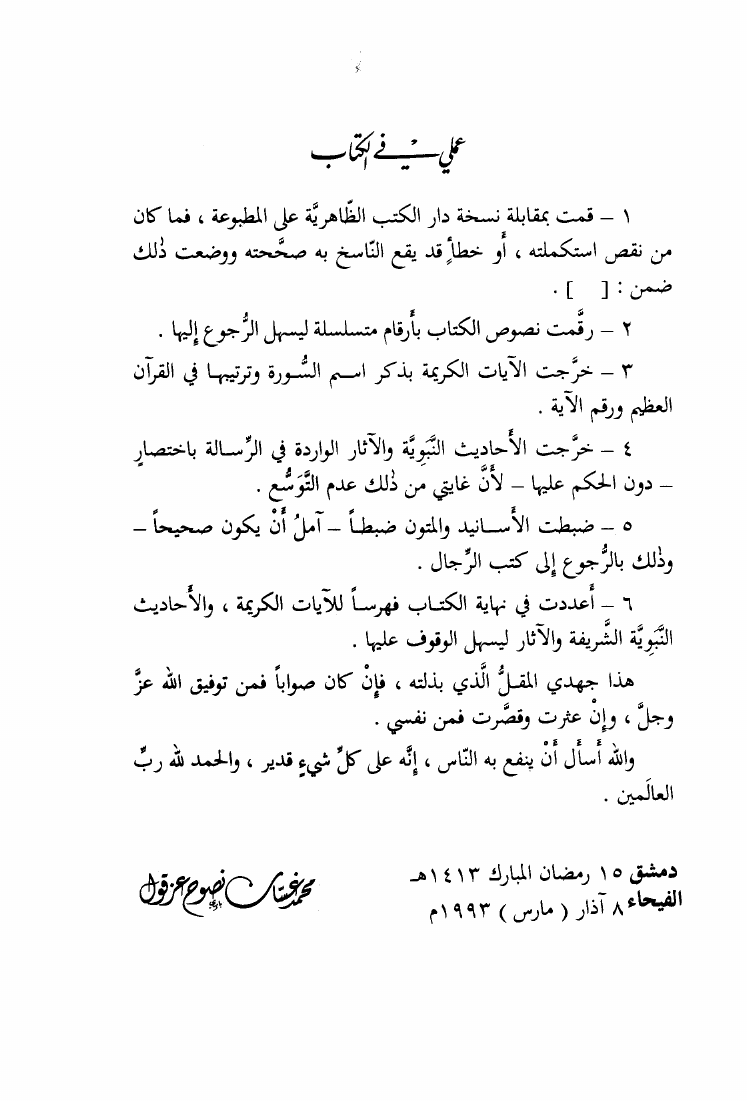 عملي في الكتاب
١ – قمت بمقابلة نسخة دار الكتب الظّاهريَّة على المطبوعة ، فما كان
من نقص استكملته ، أو خطأٍ قد يقع النّاسخ به صحَّحته ووضعت ذٰلك
ضمن : [ ] .
٢ – رقَّمت نصوص الكتاب بأرقام متسلسلة ليسهل الرُّجوع إليها .
٣ – خرَّجت الآيات الكريمة بذكر اسم السُّورة وترتيبها في القرآن
العظيم ورقم الآية .
٤ – خرَّجت الأحاديث النَّبَوِيَّة والآثار الواردة في الرِّسالة باختصارٍ
– دون الحكم عليها – لأنَّ غايتي من ذٰلك عدم التَّوَسُّع .
٥ – ضبطت الأسانيد والمتون ضبطاً – آملُ أَنْ يكون صحيحاً –
وذٰلك بالرُّجوع إلى كتب الرِّجال .
٦ – أعددت في نهاية الكتاب فهرساً للآيات الكريمة ، والأحاديث
النَّبَوِيَّة الشَّريفة والآثار ليسهل الوقوف عليها .
هذا جهدي المقلُّ الَّذي بذلته ، فإنْ كان صواباً فمن توفيق الله عزَّ
وجلَّ ، وإنْ عثرت وقصَّرت فمن نفسي .
والله أسأل أَنْ ينفع به النّاس ، إنَّه على كلِّ شيءٍ قدير ، والحمد لله ربِّ
العالَمين .
دمشق ١٥ رمضان المبارك ١٤١٣هـ
الفيحاء ٨ آذار ( مارس ) ١٩٩٣م
محمد غسان نصوح عزقول